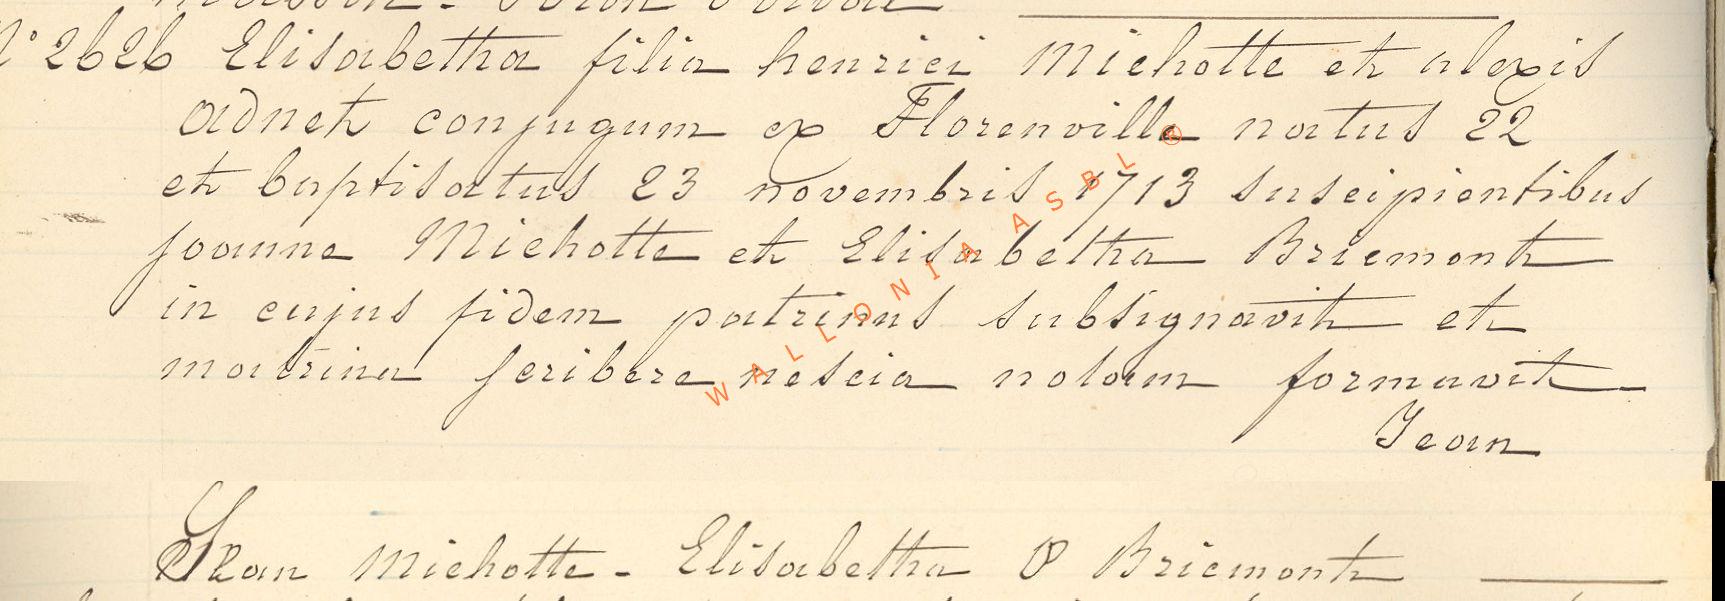 N° 2626 Elisabetha filia henrici Michotte et alexis
adnet conjugum ex Florenville natus 22
et baptisatus 23 novembris 1713 suscipientibus
joanne Michotte et Elisabetha Briemont
in cujus fidem patrinus subsignavit et
matrina scribere nescia notam formavit
Jean
Jean Michotte - Elisabetha O Briemont
WALLONIA ASBL ®